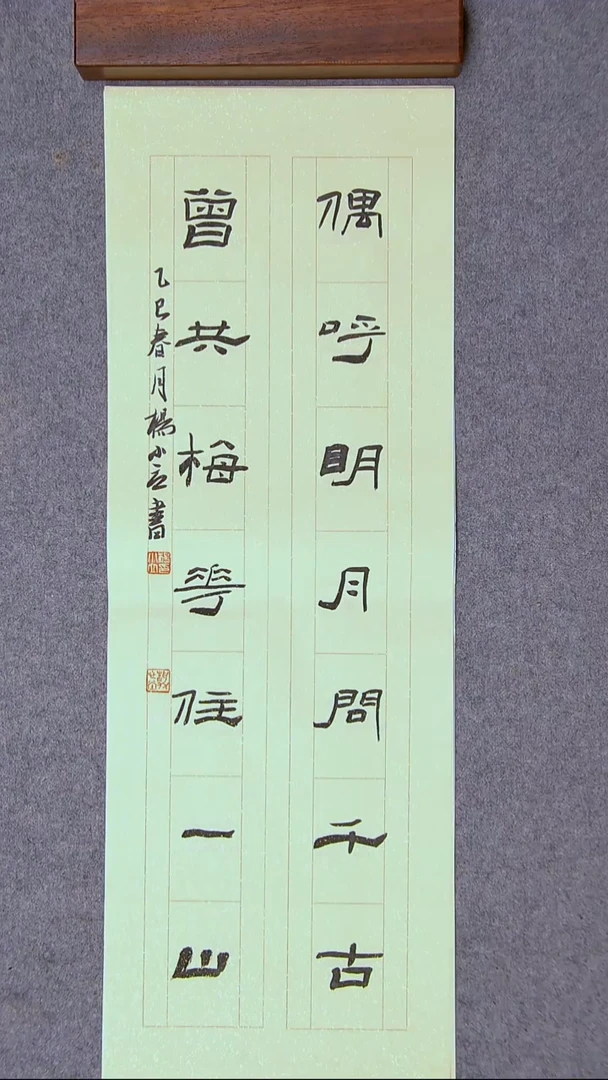 偶呼明月問千古
曾共梅花住一山
乙巳春月楊小立書